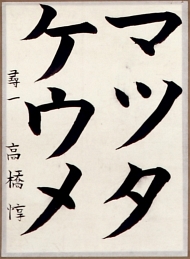 マツタ
ケウメ
尋一 高橋惇